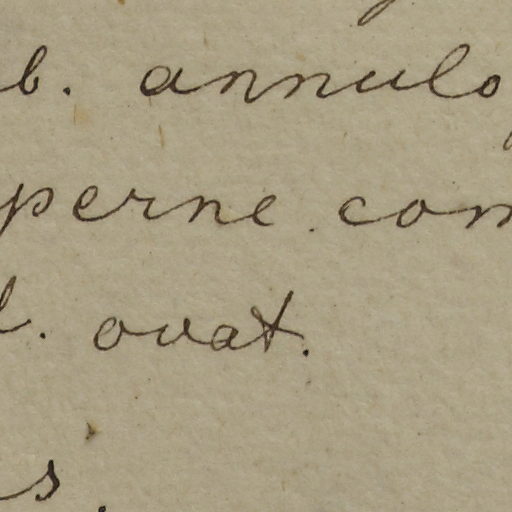 b. annulo
perne com
l. ovat.
s.